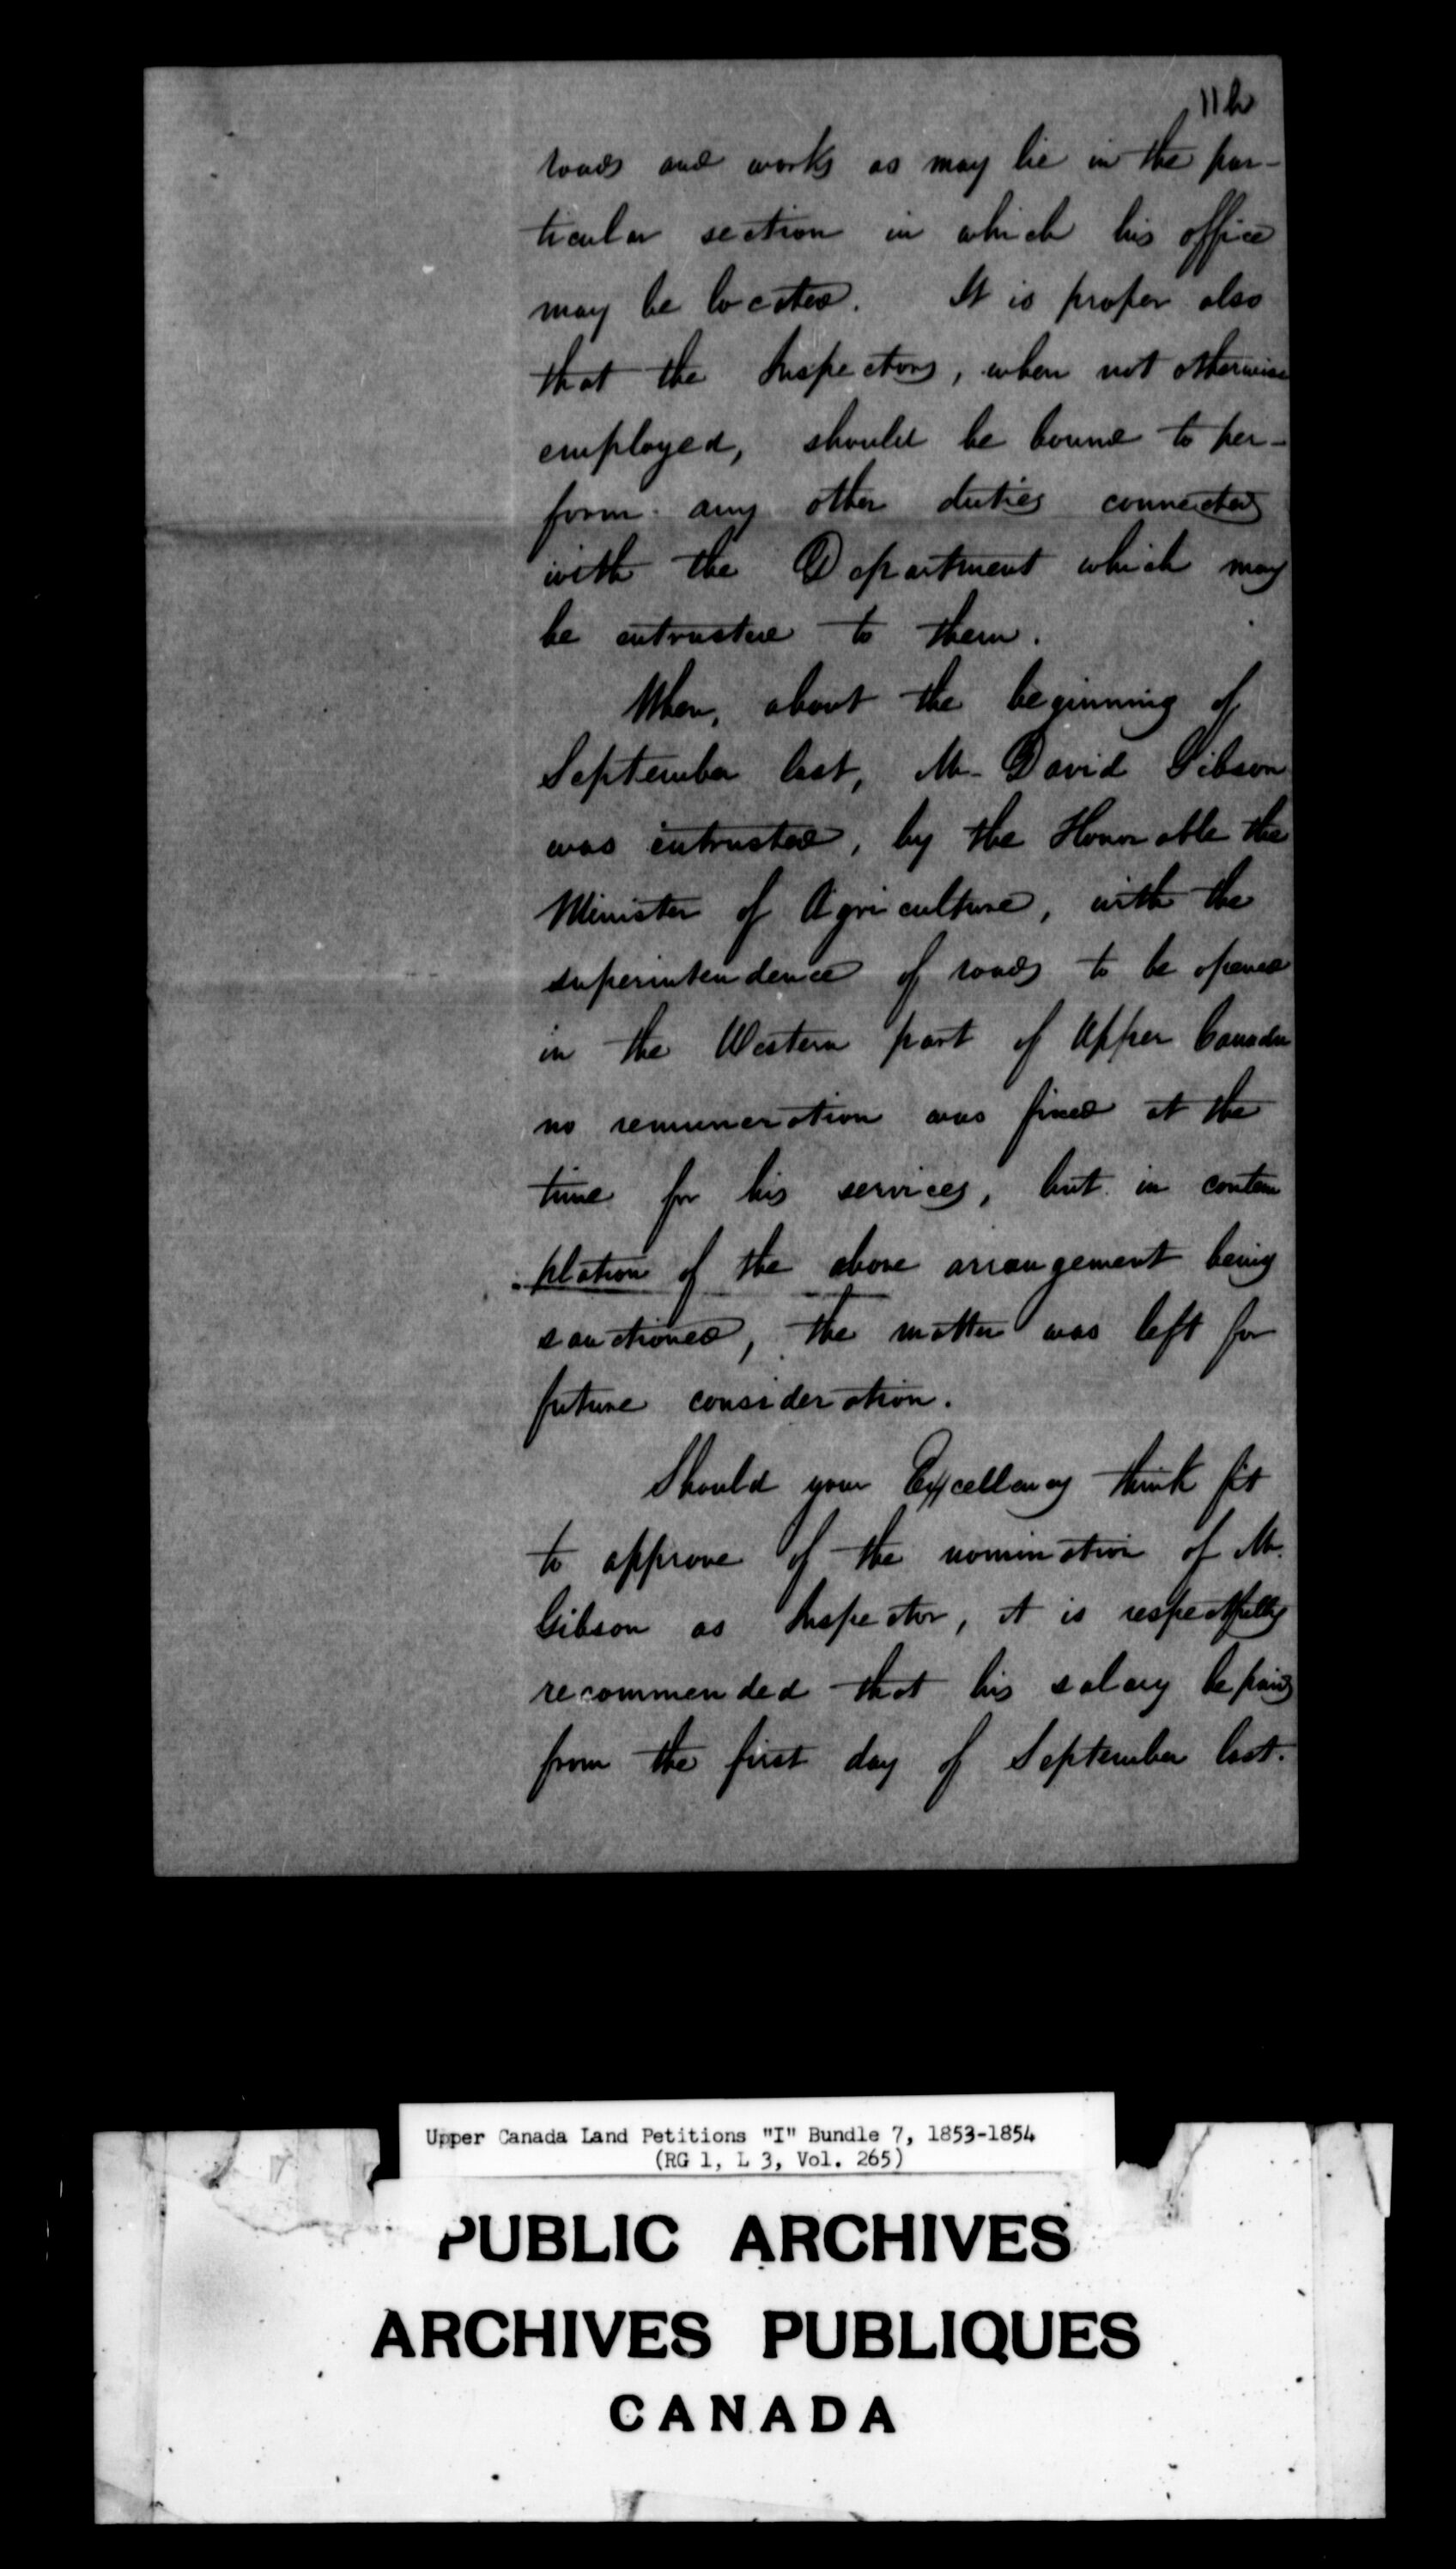 11h
roads and works as may lie in the par-
ticular section in which his office
may be located. It is proper also
that the Inspectors, when not otherwise
employed, should be bound to per-
form any other duties connected
with the Department which may
be entrusted to them.
When, about the beginning of
September last, Mr. David Gibson
was entrusted, by the Honorable the
Minister of Agriculture, with the
superintendence of roads to be opened
in the Western part of Upper Canada
no remuneration was fixed at the
time for his services, but in contem
plation of the above arrangement being
sanctioned, the matter was left for
future consideration.
Should your Excellency think fit
to approve of the nomination of Mr.
Gibson as Inspector, it is respectfully
recommended that his salary be paid
from the first day of September last.
Upper Canada Land Petitions "I" Bundle 7, 1853-1854
(RG 1, L 3, Vol. 265)
PUBLIC ARCHIVES
ARCHIVES PUBLIQUES
CANADA